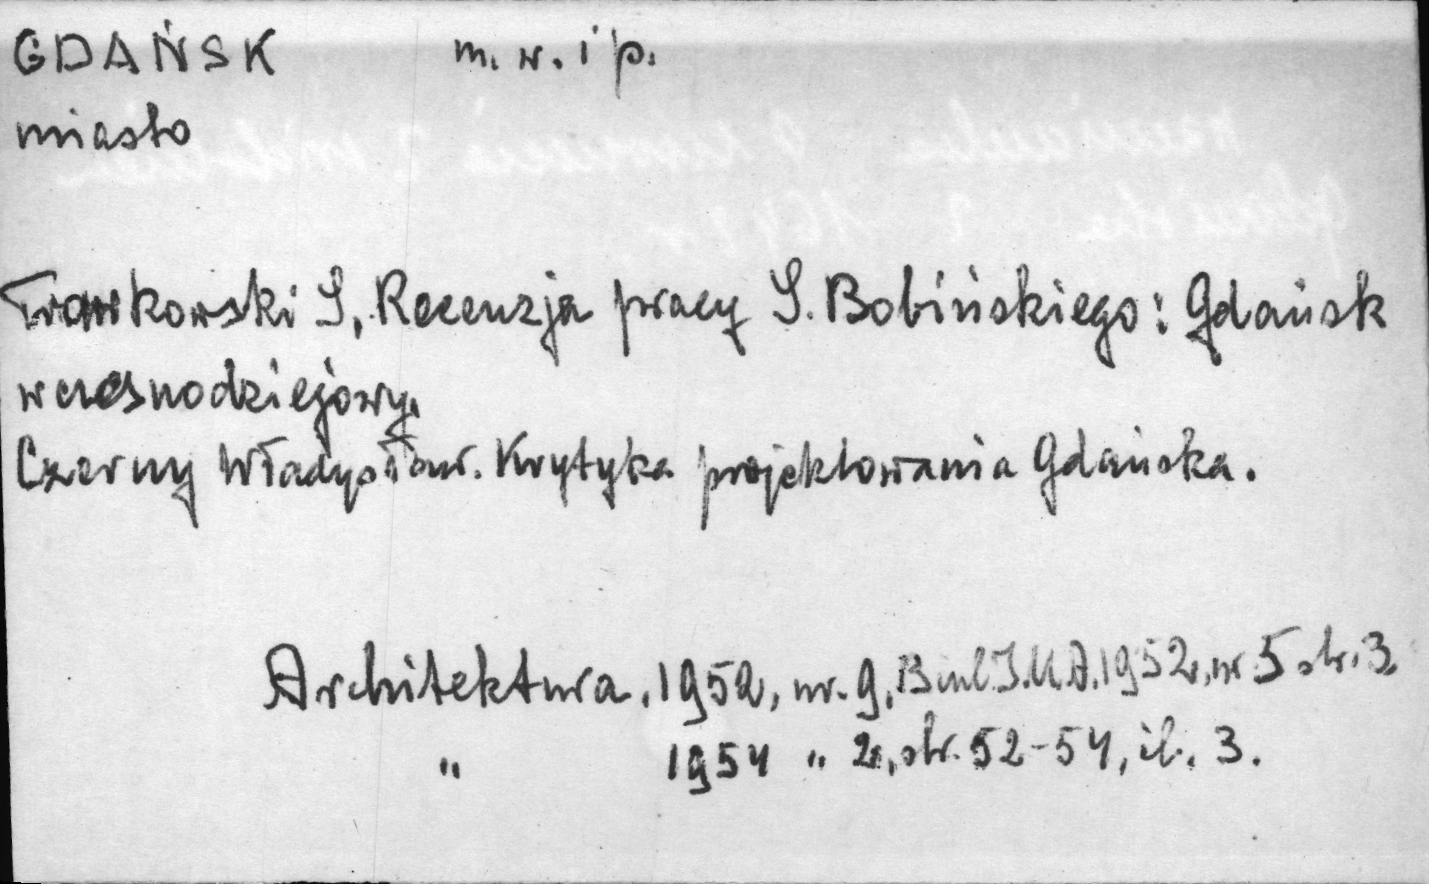 GDAŃSK m. w. i p.
miasto
Trawkowski S, Recenzja pracy S. Bobińskiego: Gdańsk
wczesnodziejowy.
Czerny Władysław. Krytyka projektowania Gdańska.
Architektura. 1952, nr. 9, Biul. I.U.A. 1952, nr 5 str. 3
" 1954 " 2, str. 52-54, il. 3.